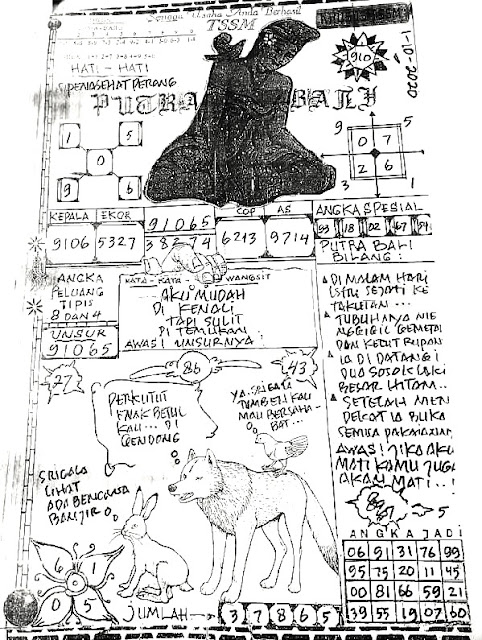 Semoga Usaha Anda Berhasil
TSSM
1-10-2020
910
HATI - HATI
PENASEHAT PERANG
PUTRA BALI
1 5
0
9 6
9 5
0 7
2 6
3 1
KEPALA EKOR
9106 5327
91065
38274
COP AS
6213 9714
ANGKA SPESIAL
02 67
PUTRA BALI
BILANG :
ANGKA
PELUANG
TIPIS
8 DAN 4
UNSUR
91065
KATA - KATA WANGSIT
AKU MUDAH
DI KENALI
TAPI SULIT
DI TEMUKAN
AWAS! UNSURNYA!
DI MALAM HARI
ISTRI SEJATI KE
TAKUTAN ...
TUBUHNYA
DAN KEDUT
IA DI DATANGI
DUA SOSOK LAKI
BESAR HITAM..
SETELAH MEN
DEKAT IA BUKA
SEMUA
AWAS! JIKA AKU
MATI KAMU JUGA
AKAN MATI..!
27
86
43
PERKUTUT
ENAK BETUL
KAU... DI
GENDONG
YA. SRIGALA
TUMBEN KAU
MAU BERSAHA-
BAT...
SRIGALA
LIHAT
ADA BENCANA
BANJIR
5
6 1
0 5
JUMLAH → 37865
ANGKA JADI
06 91 31 76 99
95 75 20 11 45
00 81 66 59 21
39 55 19 07 60